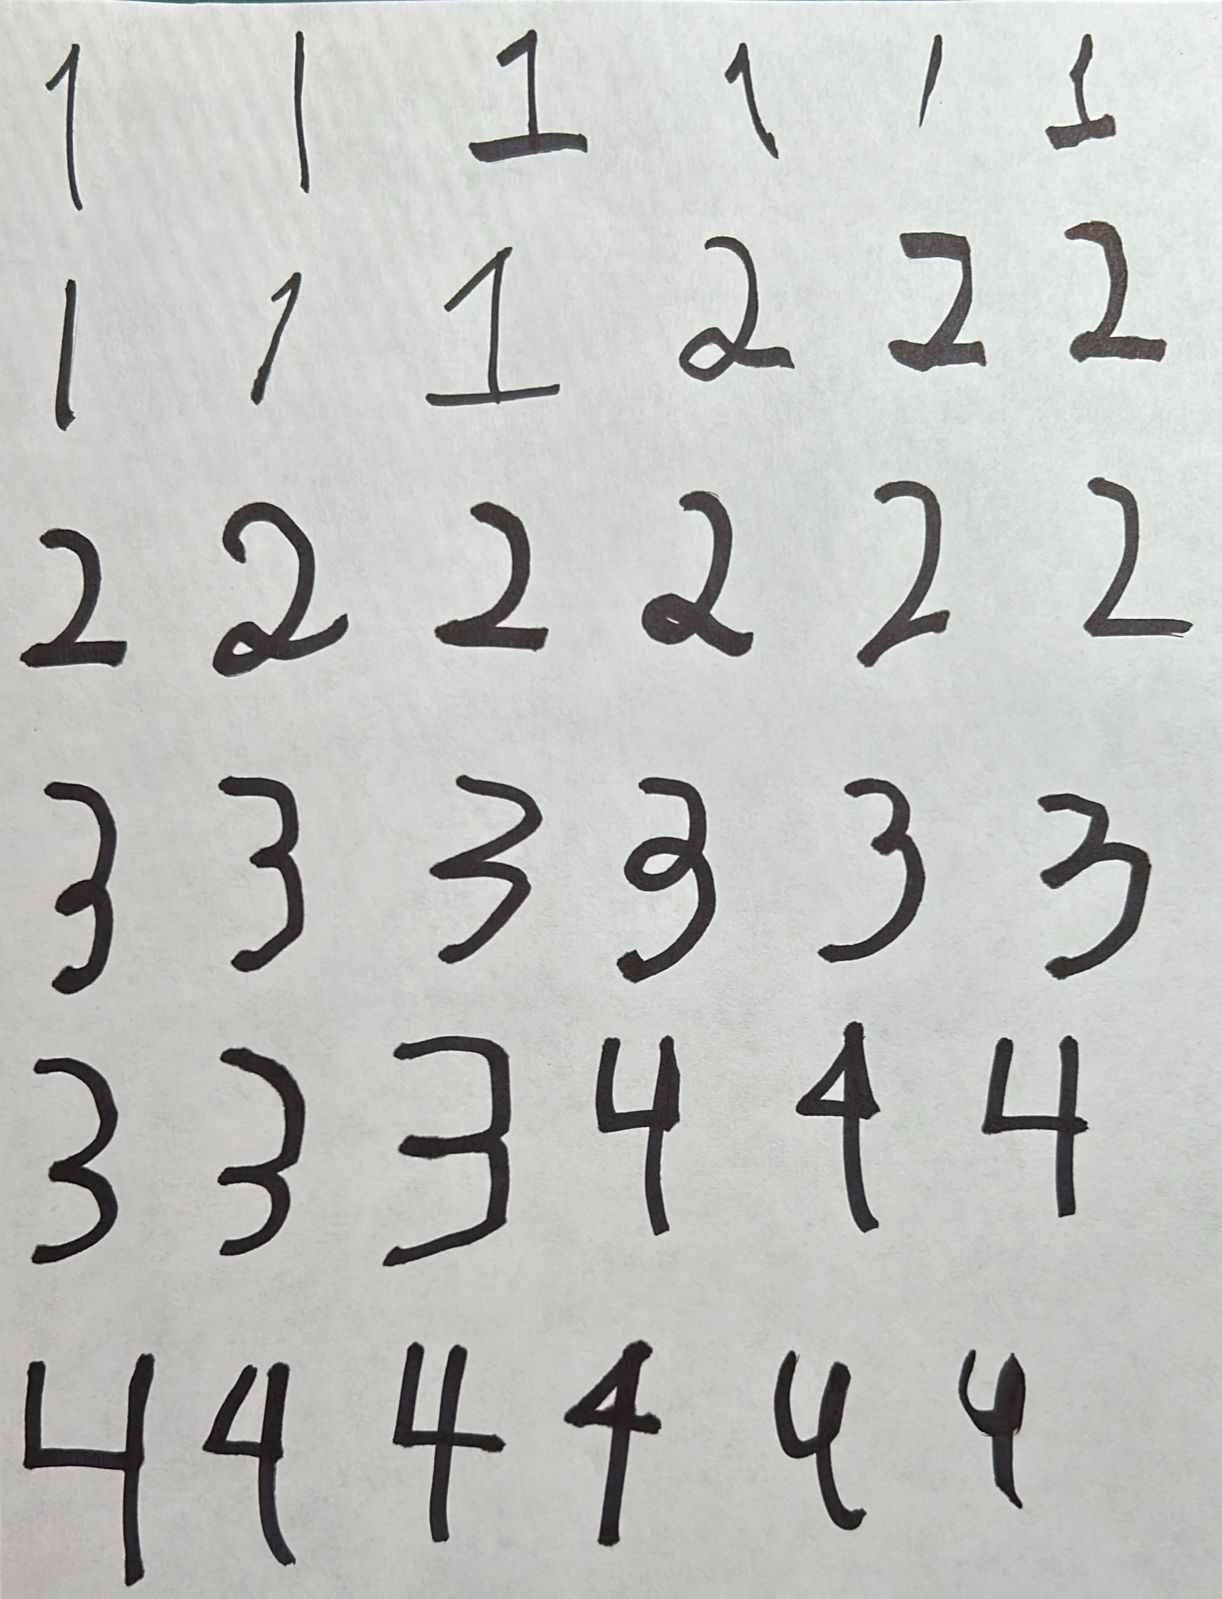 1 1 1 1 1 1
1 1 1 2 2 2
2 2 2 2 2 2
3 3 3 3 3 3
3 3 3 4 4 4
4 4 4 4 4 4